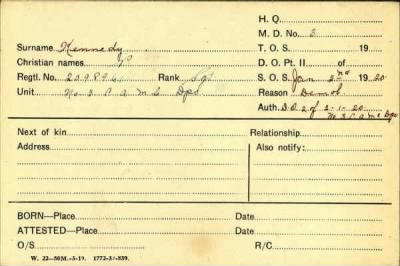 H. Q.
M. D. No. 3
Surname Kennedy T. O. S. 19
Christian names D. O. Pt. II of
Regtl. No. Rank Sgt S. O. S. Jan 2nd 1920
Unit No 3 C a m c Dpo Reason Demob
Auth. D.O. 2 of 2-1-20
No 3 C a m c Dpo
Next of kin Relationship
Address Also notify:
BORN—Place Date
ATTESTED—Place Date
O/S R/C
W. 22—50M.-5-19. 1772-39-839.